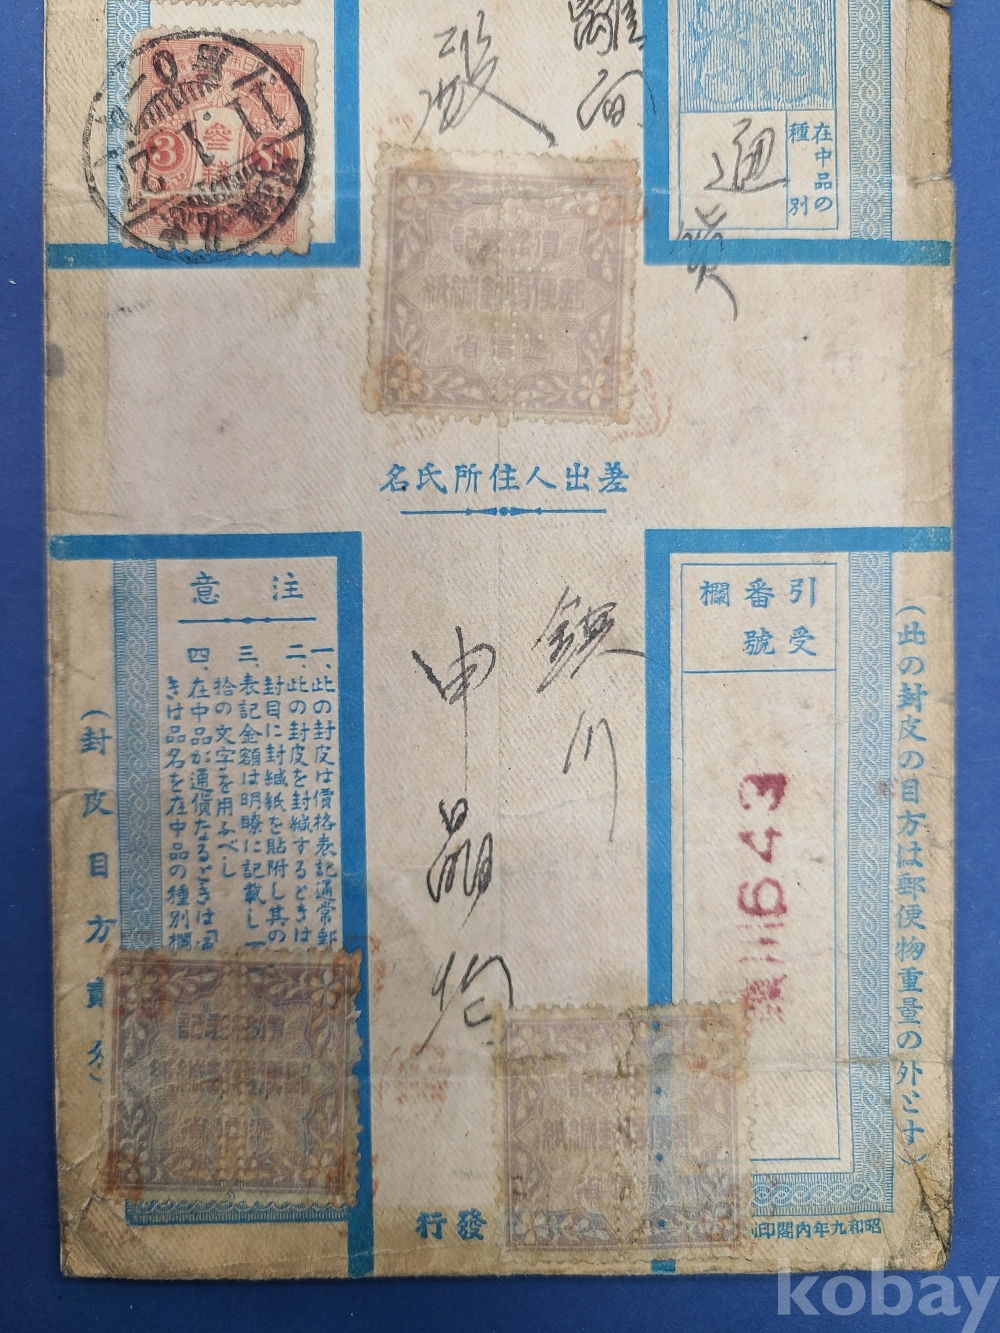 殿
在中品の
種別
通
貨
3
參錢
11.1.2
價格表記
郵便物封緘紙
遞信省
差出人住所氏名
引受
番號
欄
鎭川
申
643
注意
一、此の封皮は價格表記通常郵
二、此の封皮を封緘するときは
封目に封緘紙を貼附し其の
三、表記金額は明瞭に記載し一
拾の文字を用ふべし
四、在中品が通貨なるときは「通
きは品名を在中品の種別欄
(此の封皮の目方は郵便物重量の外とす)
(封皮目方貳匁)
發行
昭和九年內閣印
kobay